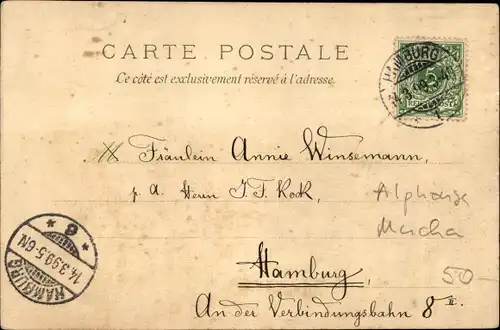 CARTE POSTALE
Ce côté est exclusivement réservé à l'adresse.
HAMBURG
14.3.99.
1
5
REICHSPOST
Fräulein Annie Winsemann,
p. a. Herrn J. F. Kock,
Alphonse
Mucha
Hamburg,
50-
An der Verbindungsbahn 8 II.
HAMBURG
14.3.99.5-6N
* 9 *